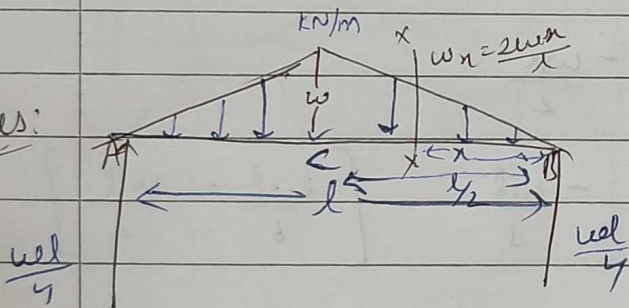 kN/m
x
wx = 2wx/l
w
es:
A
C
x
x
B
l/2
l
wl/4
wl/4